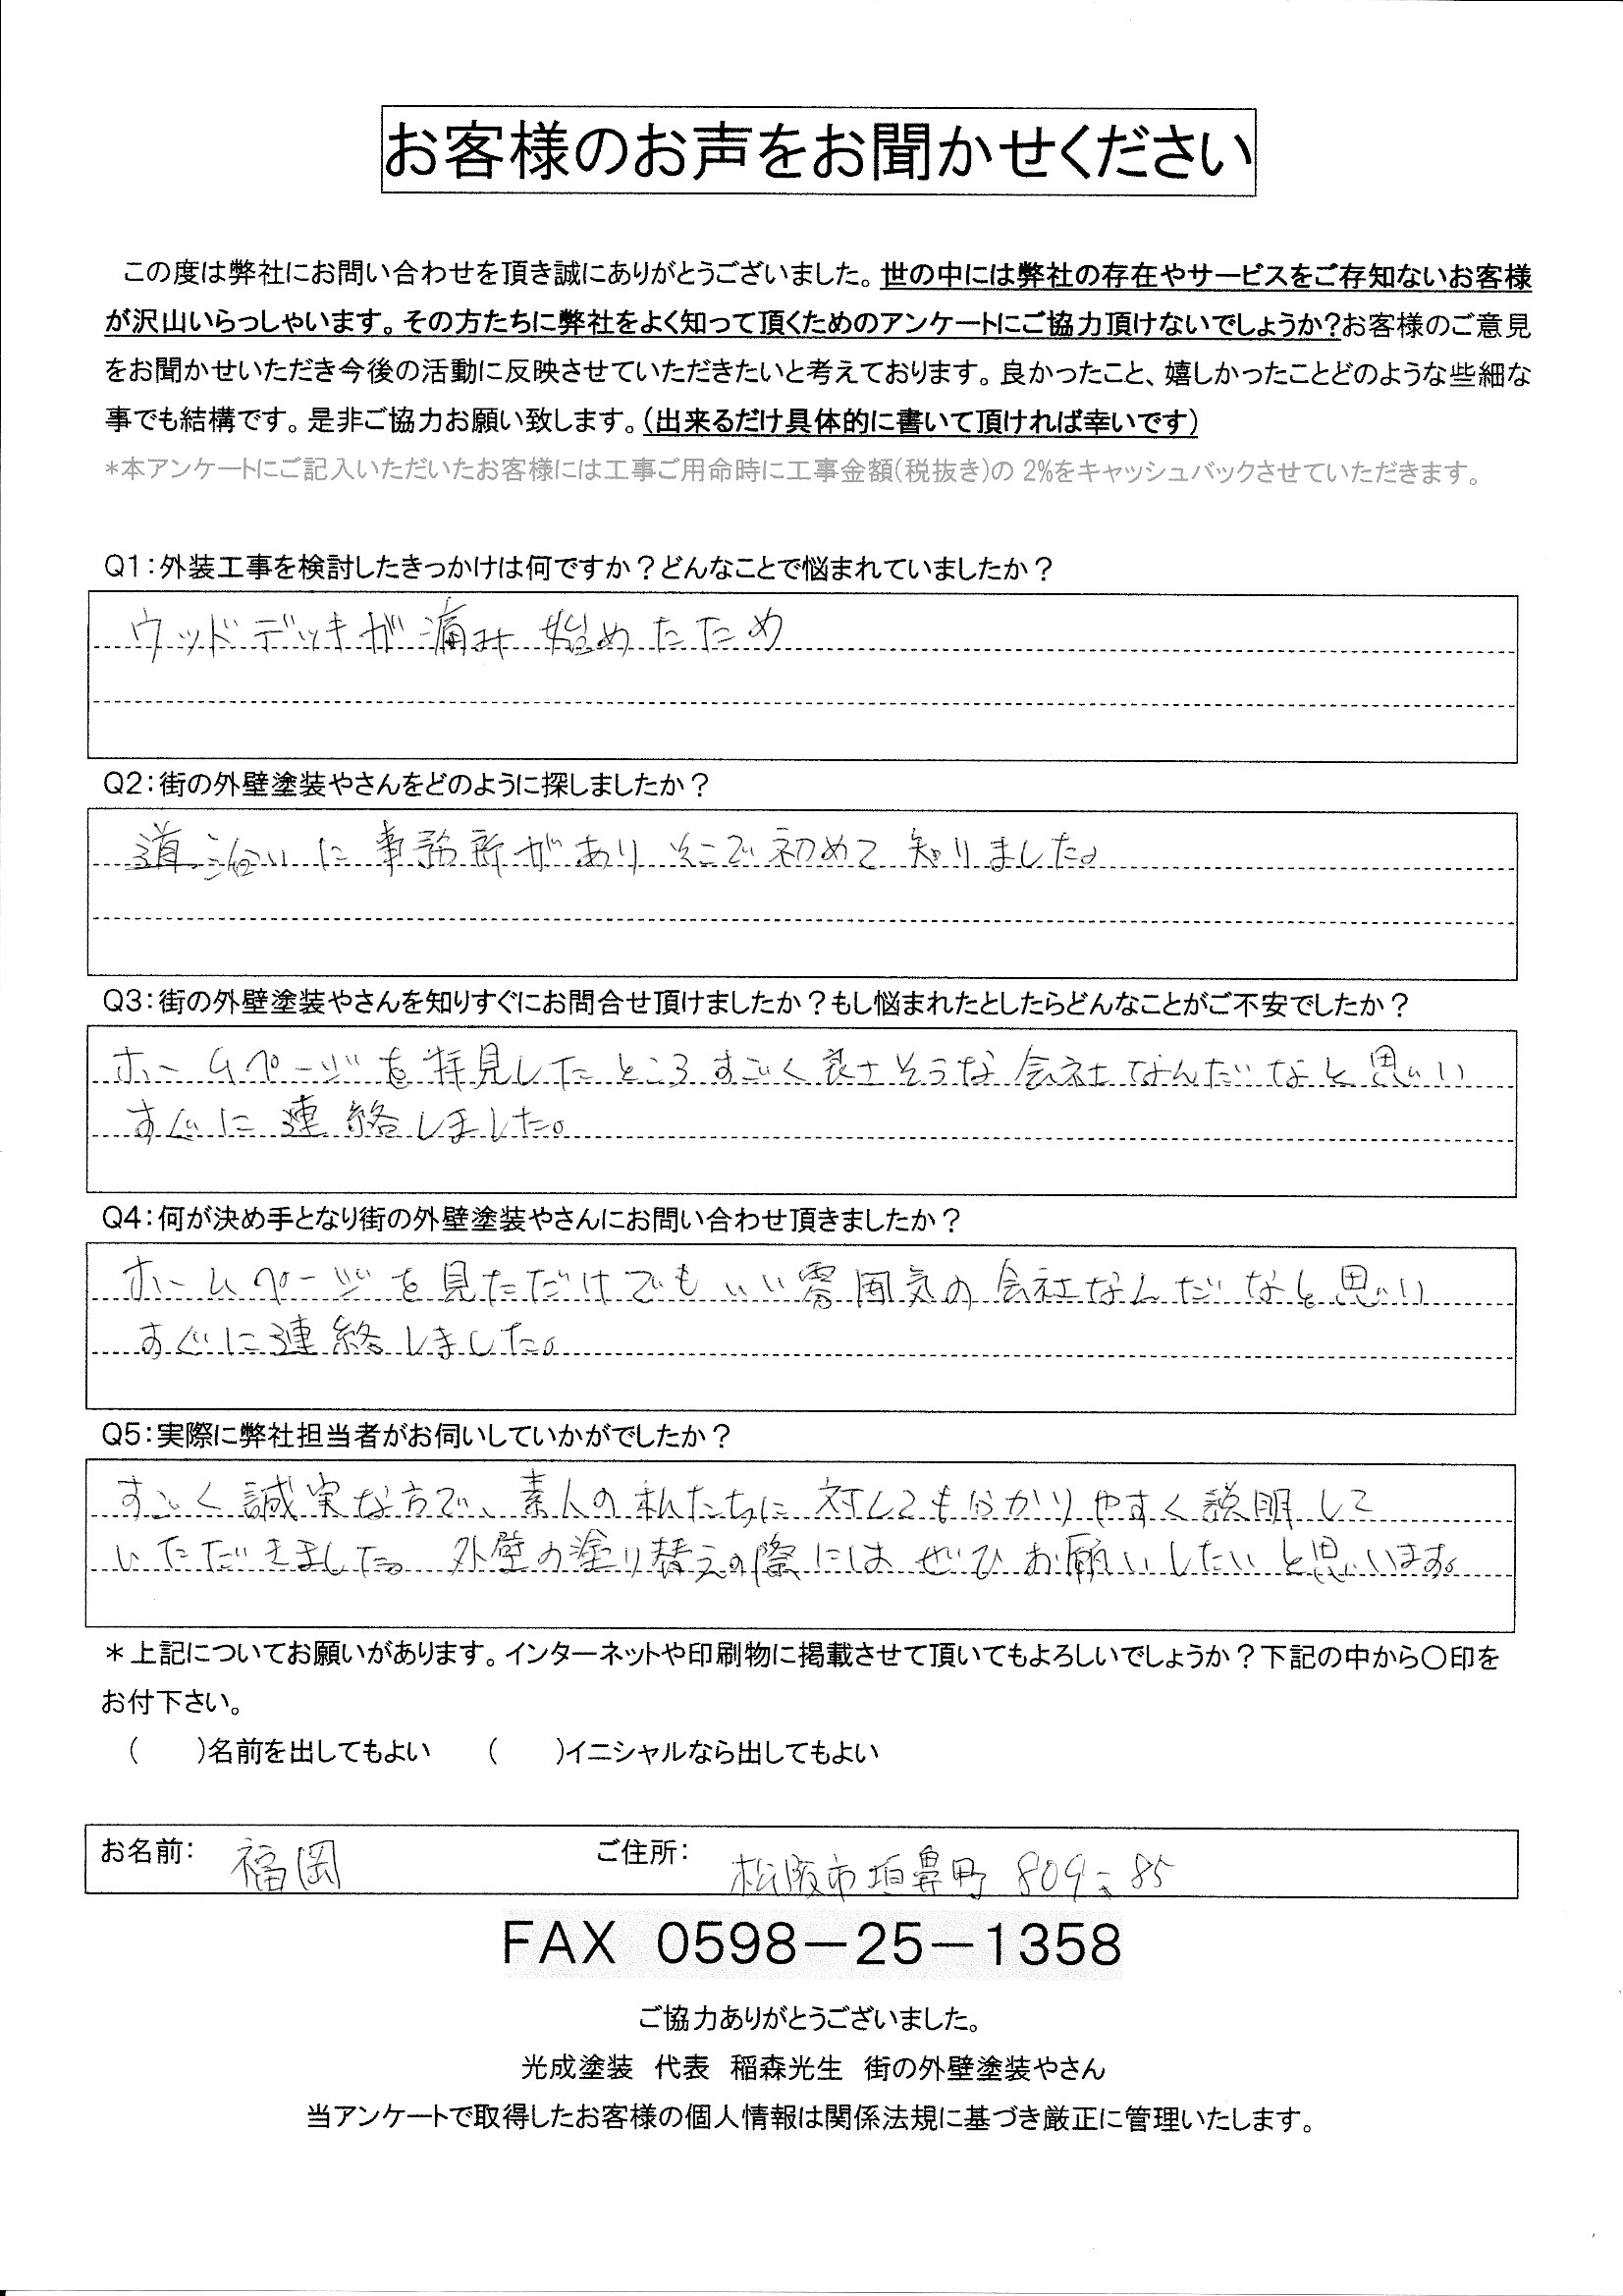 お客様のお声をお聞かせください
この度は弊社にお問い合わせを頂き誠にありがとうございました。世の中には弊社の存在やサービスをご存知ないお客様
が沢山いらっしゃいます。その方たちに弊社をよく知って頂くためのアンケートにご協力頂けないでしょうか?お客様のご意見
をお聞かせいただき今後の活動に反映させていただきたいと考えております。良かったこと、嬉しかったことどのような些細な
事でも結構です。是非ご協力お願い致します。(出来るだけ具体的に書いて頂ければ幸いです)
*本アンケートにご記入いただいたお客様には工事ご用命時に工事金額(税抜き)の 2%をキャッシュバックさせていただきます。
Q1:外装工事を検討したきっかけは何ですか？どんなことで悩まれていましたか？
ウッドデッキが痛み始めたため
Q2:街の外壁塗装やさんをどのように探しましたか？
道沿いに事務所があり そこで初めて知りました。
Q3:街の外壁塗装やさんを知りすぐにお問合せ頂けましたか？もし悩まれたとしたらどんなことがご不安でしたか？
ホームページを拝見したところすごく良さそうな会社なんだなと思い
すぐに連絡しました。
Q4:何が決め手となり街の外壁塗装やさんにお問い合わせ頂きましたか？
ホームページを見ただけでもいい雰囲気の会社なんだなと思い
すぐに連絡しました。
Q5:実際に弊社担当者がお伺いしていかがでしたか？
すごく誠実な方で、素人の私たちに対しても分かりやすく説明して
いただきました。外壁の塗り替えの際にはぜひお願いしたいと思います。
＊上記についてお願いがあります。インターネットや印刷物に掲載させて頂いてもよろしいでしょうか？下記の中から〇印を
お付下さい。
(　　)名前を出してもよい　　(　　)イニシャルなら出してもよい
お名前: 福岡　ご住所: 松阪市垣鼻町 809-85
FAX 0598－25－1358
ご協力ありがとうございました。
光成塗装　代表　稲森光生　街の外壁塗装やさん
当アンケートで取得したお客様の個人情報は関係法規に基づき厳正に管理いたします。